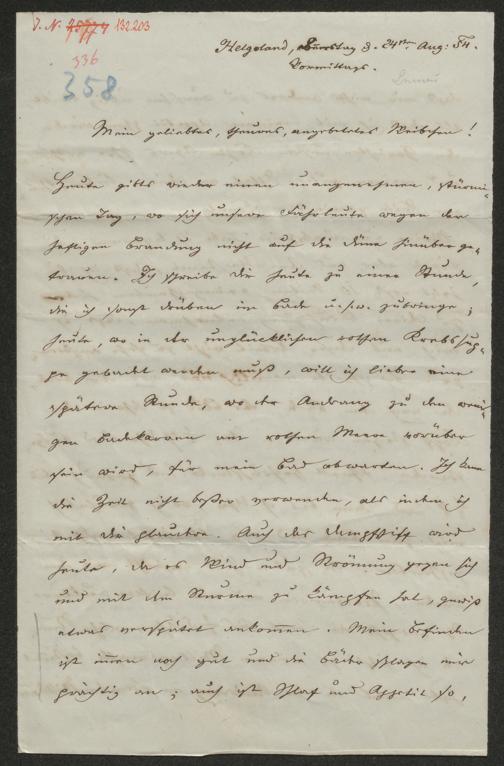 J. N. 45774 132.203
336
358
Helgoland, Donnerstag d. 24ten Aug: 54.
Vormittags.
Mein geliebtes, theures, angebetetes Weibchen!
Heute gibts wieder einen unangenehmen, stürmi-
schen Tag, wo sich unsere Fährleute wegen der
heftigen Brandung nicht auf die Düne hinüber ge-
trauen. Ich schreibe dir heute zu einer Stunde,
die ich sonst drüben im Bade u.s.w. zubringe;
heute, wo in der unglücklichen rothen Krebssup-
pe gebadet werden muß, will ich lieber eine
spätere Stunde, wo der Andrang zu den weni-
gen Badekarren am rothen Meere vorüber
sein wird, für mein Bad abwarten. Ich kann
die Zeit nicht beßer verwenden, als indem ich
mit dir plaudere. Auch das Dampfschiff wird
heute, da es Wind und Strömung gegen sich
und mit dem Sturme zu kämpfen hat, gewiß
etwas verspätet ankommen. Mein Befinden
ist immer noch gut und die Bäder schlagen mir
prächtig an; auch ist Schlaf und Appetit so,